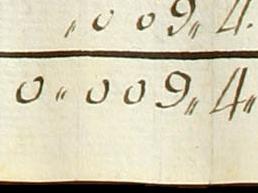 „009„4.
0„009„4„